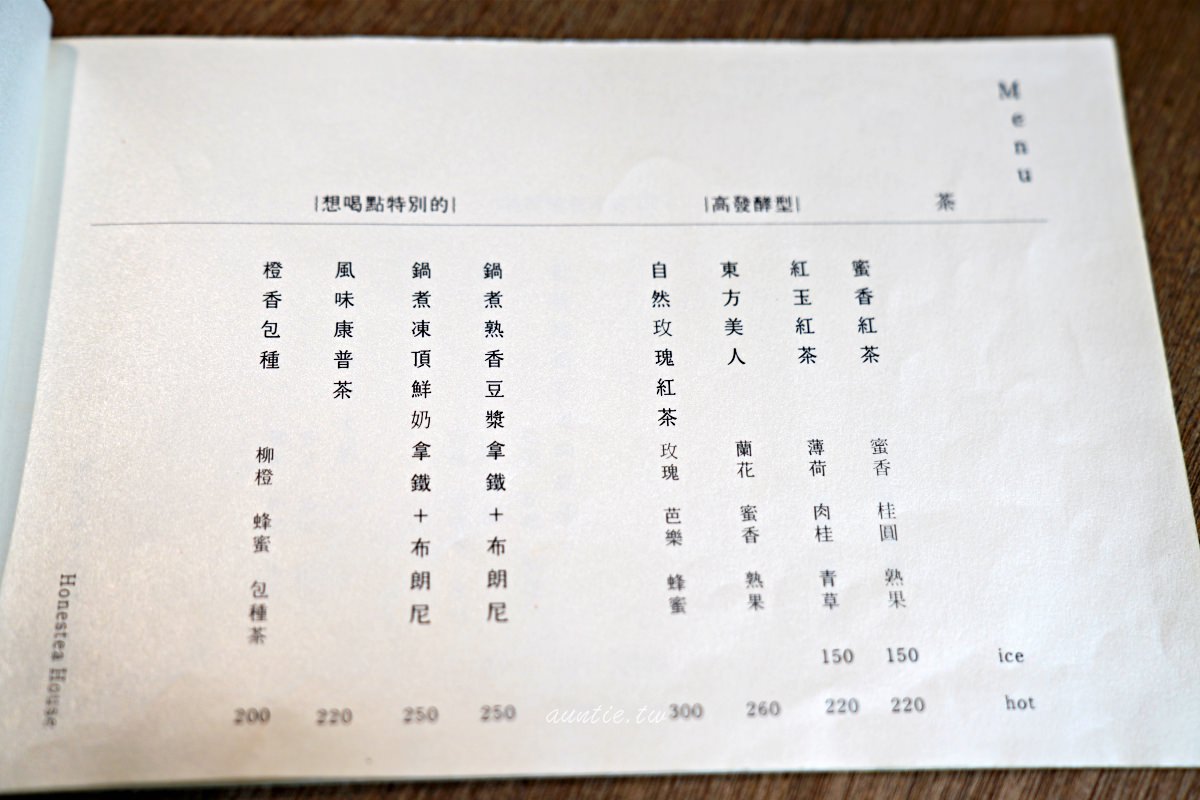 Menu
茶
|高發酵型|
蜜香紅茶
蜜香 桂圓 熟果
150
220
紅玉紅茶
薄荷 肉桂 青草
150
220
東方美人
蘭花 蜜香 熟果
260
自然玫瑰紅茶
玫瑰 芭樂 蜂蜜
300
ice
hot
|想喝點特別的|
鍋煮熟香豆漿拿鐵+布朗尼
250
鍋煮凍頂鮮奶拿鐵+布朗尼
250
風味康普茶
220
橙香包種
柳橙 蜂蜜 包種茶
200
Honestea House
auntie.tw